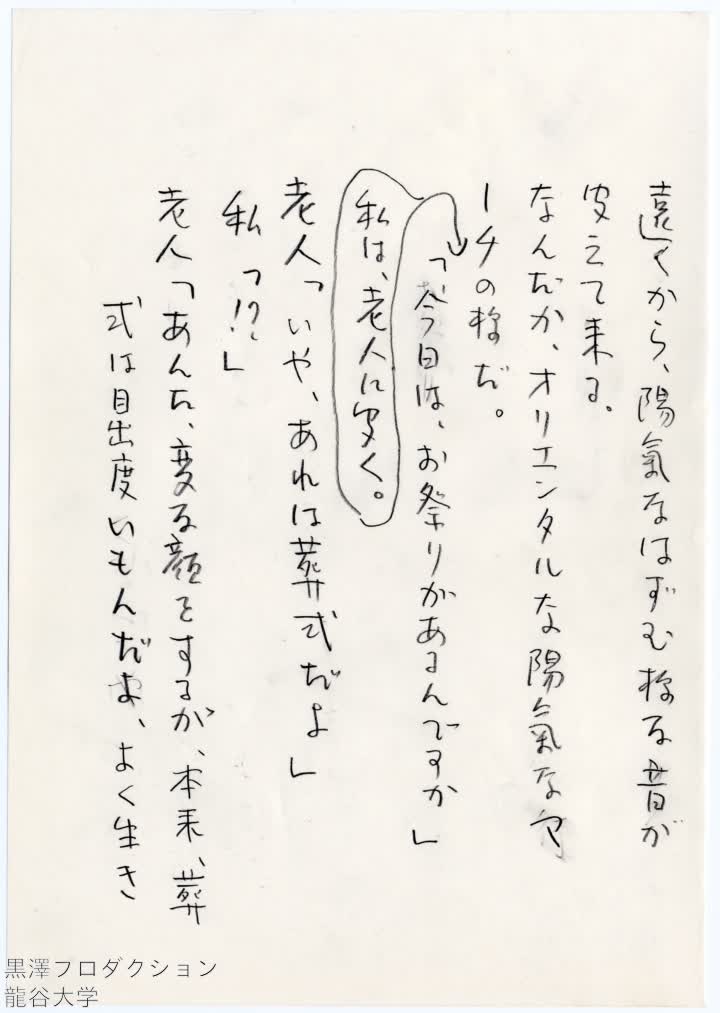 遠くから、陽氣なはずむ様な音が
聞えて来る。
なんだか、オリエンタルな陽氣なマ
ーチの様だ。
「今日は、お祭りがあるんですか」
私は、老人に聞く。
老人「いや、あれは葬式だよ」
私「!?」
老人「あんた、変な顔をするが、本来、葬
式は目出度いもんだよ、よく生き
黒澤プロダクション
龍谷大学